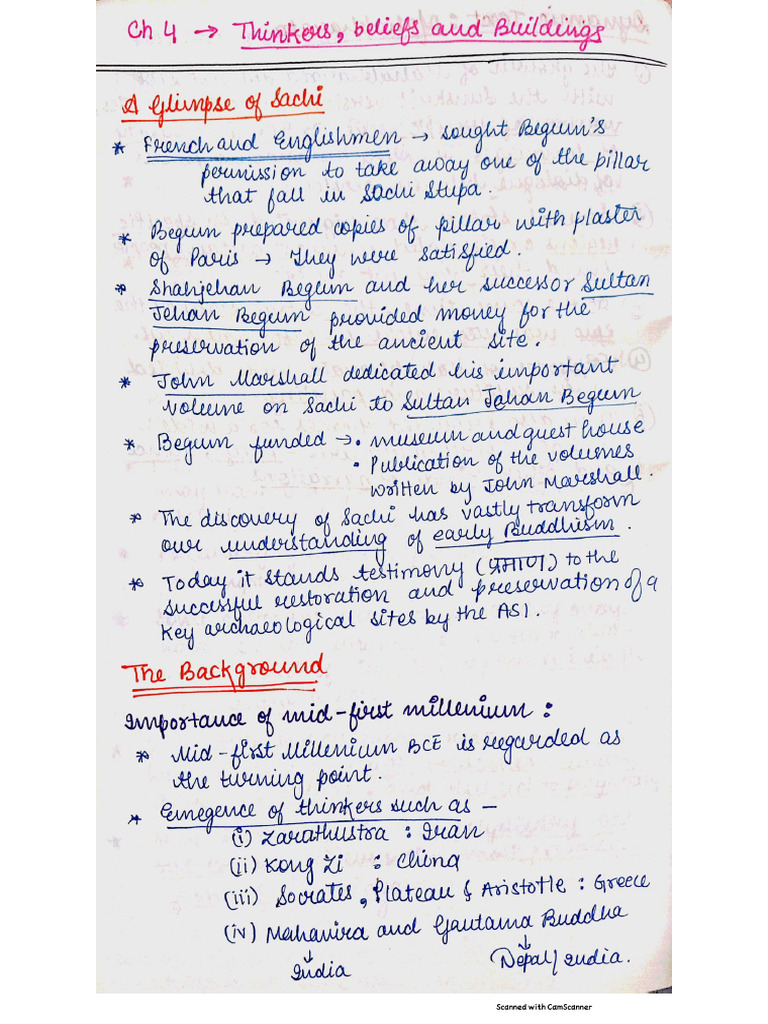 Ch 4 → Thinkers, beliefs and Buildings
A Glimpse of Sachi
* French and Englishmen → sought Begum's
permission to take away one of the pillar
that fall in Sachi Stupa.
* Begum prepared copies of pillar with plaster
of Paris → They were satisfied.
* Shahjehan Begum and her successor Sultan
Jehan Begum provided money for the
preservation of the ancient site.
* John Marshall dedicated his important
volume on Sachi to Sultan Jehan Begum
* Begum funded → • museum and guest house
• Publication of the volumes
written by John Marshall.
* The discovery of Sachi has vastly transform
our understanding of early Buddhism.
* Today it stands testimony (प्रमाण) to the
successful restoration and preservation of a
key archaeological sites by the ASI.
The Background
Importance of mid-first millenium :
* Mid-first Millenium BCE is regarded as
the turning point.
* Emegence of thinkers such as –
(i) Zarathustra : Iran
(ii) Kong Zi : China
(iii) Socrates, Plateau & Aristotle : Greece
(iv) Mahavira and Gautama Buddha
↓ ↓
India Nepal/India.
Scanned with CamScanner